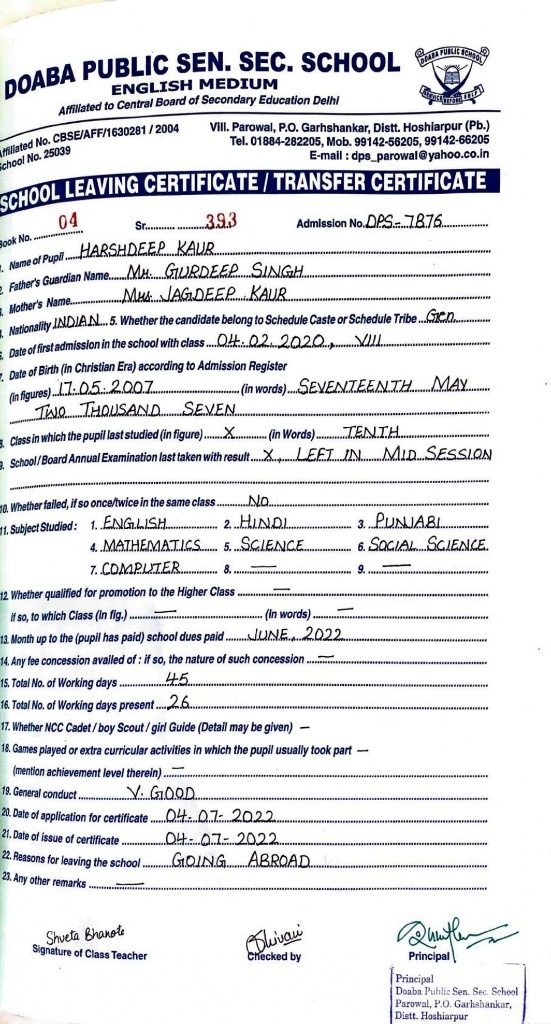 DOABA PUBLIC SEN. SEC. SCHOOL
DOABA PUBLIC SCHOOL
SERVICE BEFORE SELF
ENGLISH MEDIUM
Affiliated to Central Board of Secondary Education Delhi
Affiliated No. CBSE/AFF/1630281 / 2004
School No. 25039
Vill. Parowal, P.O. Garhshankar, Distt. Hoshiarpur (Pb.)
Tel. 01884-282205, Mob. 99142-56205, 99142-66205
E-mail : dps_parowal@yahoo.co.in
SCHOOL LEAVING CERTIFICATE / TRANSFER CERTIFICATE
Book No. 04 Sr. 393 Admission No. DPS-7876
1. Name of Pupil HARSHDEEP KAUR
2. Father's Guardian Name Mr. GURDEEP SINGH
3. Mother's Name Mrs. JAGDEEP KAUR
4. Nationality INDIAN 5. Whether the candidate belong to Schedule Caste or Schedule Tribe Gen.
6. Date of first admission in the school with class 04.02.2020, VIII
7. Date of Birth (in Christian Era) according to Admission Register
(in figures) 17.05.2007 (in words) SEVENTEENTH MAY
TWO THOUSAND SEVEN
8. Class in which the pupil last studied (in figure) X (in Words) TENTH
9. School / Board Annual Examination last taken with result X, LEFT IN MID SESSION
10. Whether failed, if so once/twice in the same class NO
11. Subject Studied : 1. ENGLISH 2. HINDI 3. PUNJABI
4. MATHEMATICS 5. SCIENCE 6. SOCIAL SCIENCE
7. COMPUTER 8. — 9. —
12. Whether qualified for promotion to the Higher Class —
if so, to which Class (in fig.) — (In words) —
13. Month up to the (pupil has paid) school dues paid JUNE, 2022
14. Any fee concession availed of : if so, the nature of such concession —
15. Total No. of Working days 45
16. Total No. of Working days present 26
17. Whether NCC Cadet / boy Scout / girl Guide (Detail may be given) —
18. Games played or extra curricular activities in which the pupil usually took part —
(mention achievement level therein) —
19. General conduct V. GOOD
20. Date of application for certificate 04-07-2022
21. Date of issue of certificate 04-07-2022
22. Reasons for leaving the school GOING ABROAD
23. Any other remarks —
Shveta Bhanote
Signature of Class Teacher
Shivani
Checked by
Principal
Principal
Doaba Public Sen. Sec. School
Parowal, P.O. Garhshankar,
Distt. Hoshiarpur